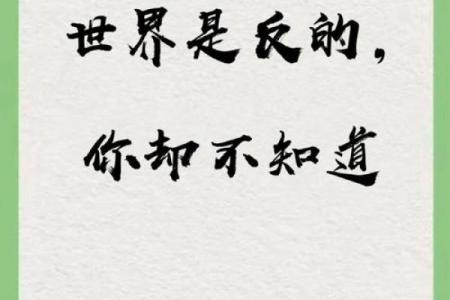 世界是反的，
你却不知道